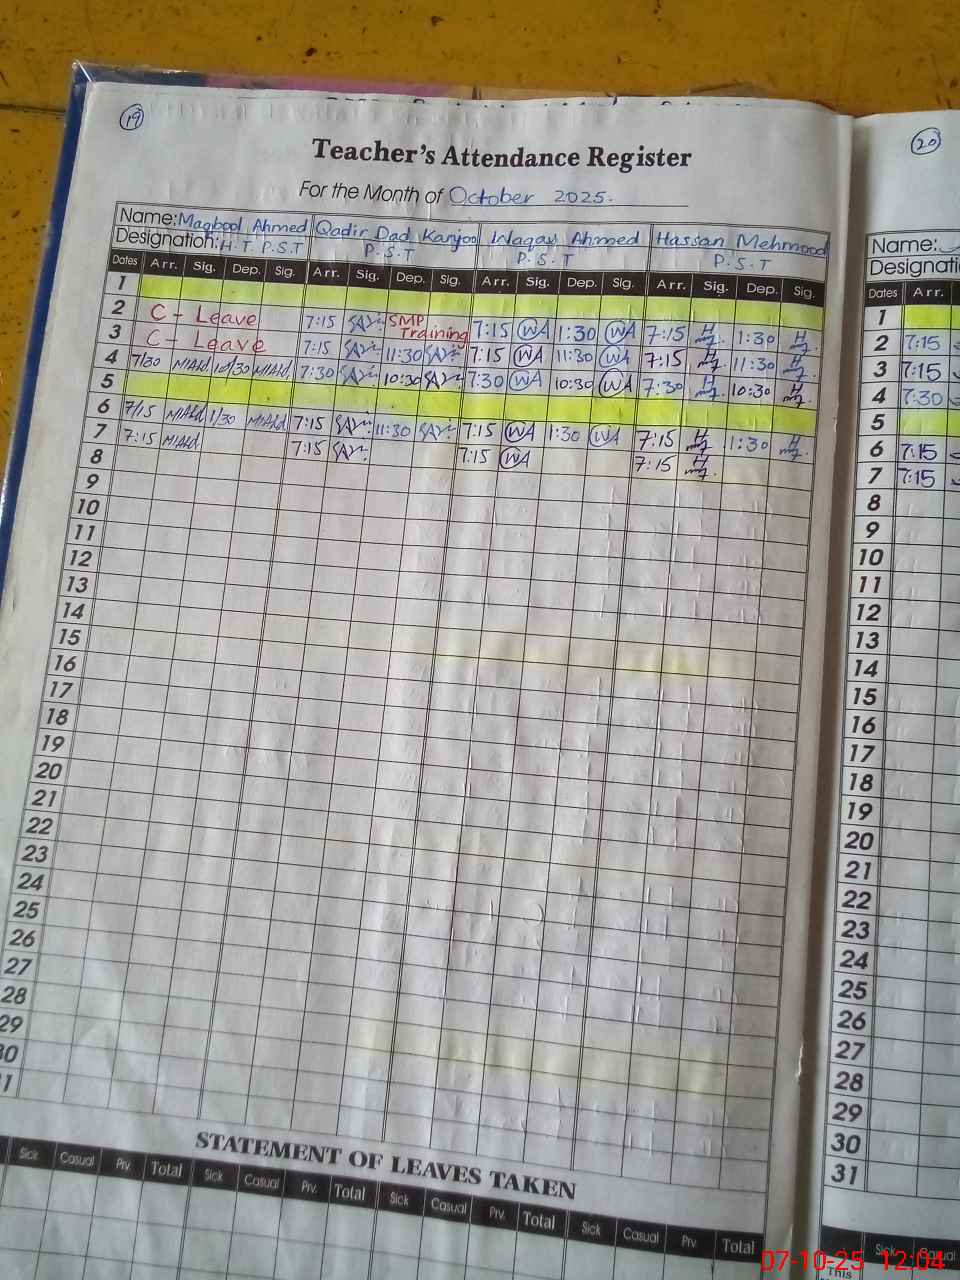 19
Teacher's Attendance Register
For the Month of October 2025.
Name: Maqbool Ahmed Qadir Dad Kanjoo Waqay Ahmed Hassan Mehmood
Designation: H.T. P.S.T P.S.T P.S.T P.S.T
Dates Arr. Sig. Dep. Sig. Arr. Sig. Dep. Sig. Arr. Sig. Dep. Sig. Arr. Sig. Dep. Sig.
1
2 C - Leave 7:15 SMP Training 7:15 WA 1:30 WA 7:15 1:30
3 C - Leave 7:15 11:30 7:15 WA 11:30 WA 7:15 11:30
4 7/30 10/30 7:30 10:30 7:30 WA 10:30 WA 7:30 10:30
5
6 7/15 1/30 7:15 11:30 7:15 WA 1:30 WA 7:15 1:30
7 7:15 7:15 7:15 WA 7:15
8
9
10
11
12
13
14
15
16
17
18
19
20
21
22
23
24
25
26
27
28
29
30
31
STATEMENT OF LEAVES TAKEN
Sick Casual Prv. Total Sick Casual Prv. Total Sick Casual Prv. Total Sick Casual Prv. Total
20
Name:
Dates Arr.
1
2 7:15
3 7:15
4 7:30
5
6 7:15
7 7:15
8
9
10
11
12
13
14
15
16
17
18
19
20
21
22
23
24
25
26
27
28
29
30
31
Sick Casual
This
07-10-25 12:04